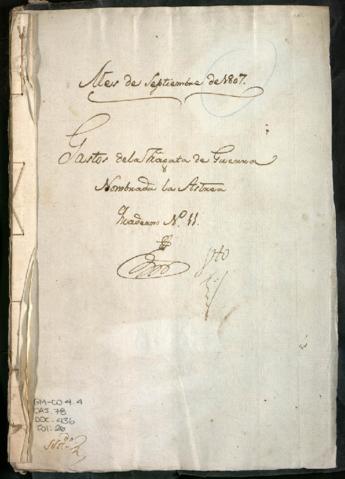 Mes de Septiembre de 1807.
Gastos de la Fragata de Guerra
Nombrada la Astrea
Quaderno N.º 11.
GM-CO 4.4
CAS. 78
DOC. 436
FOL. 26